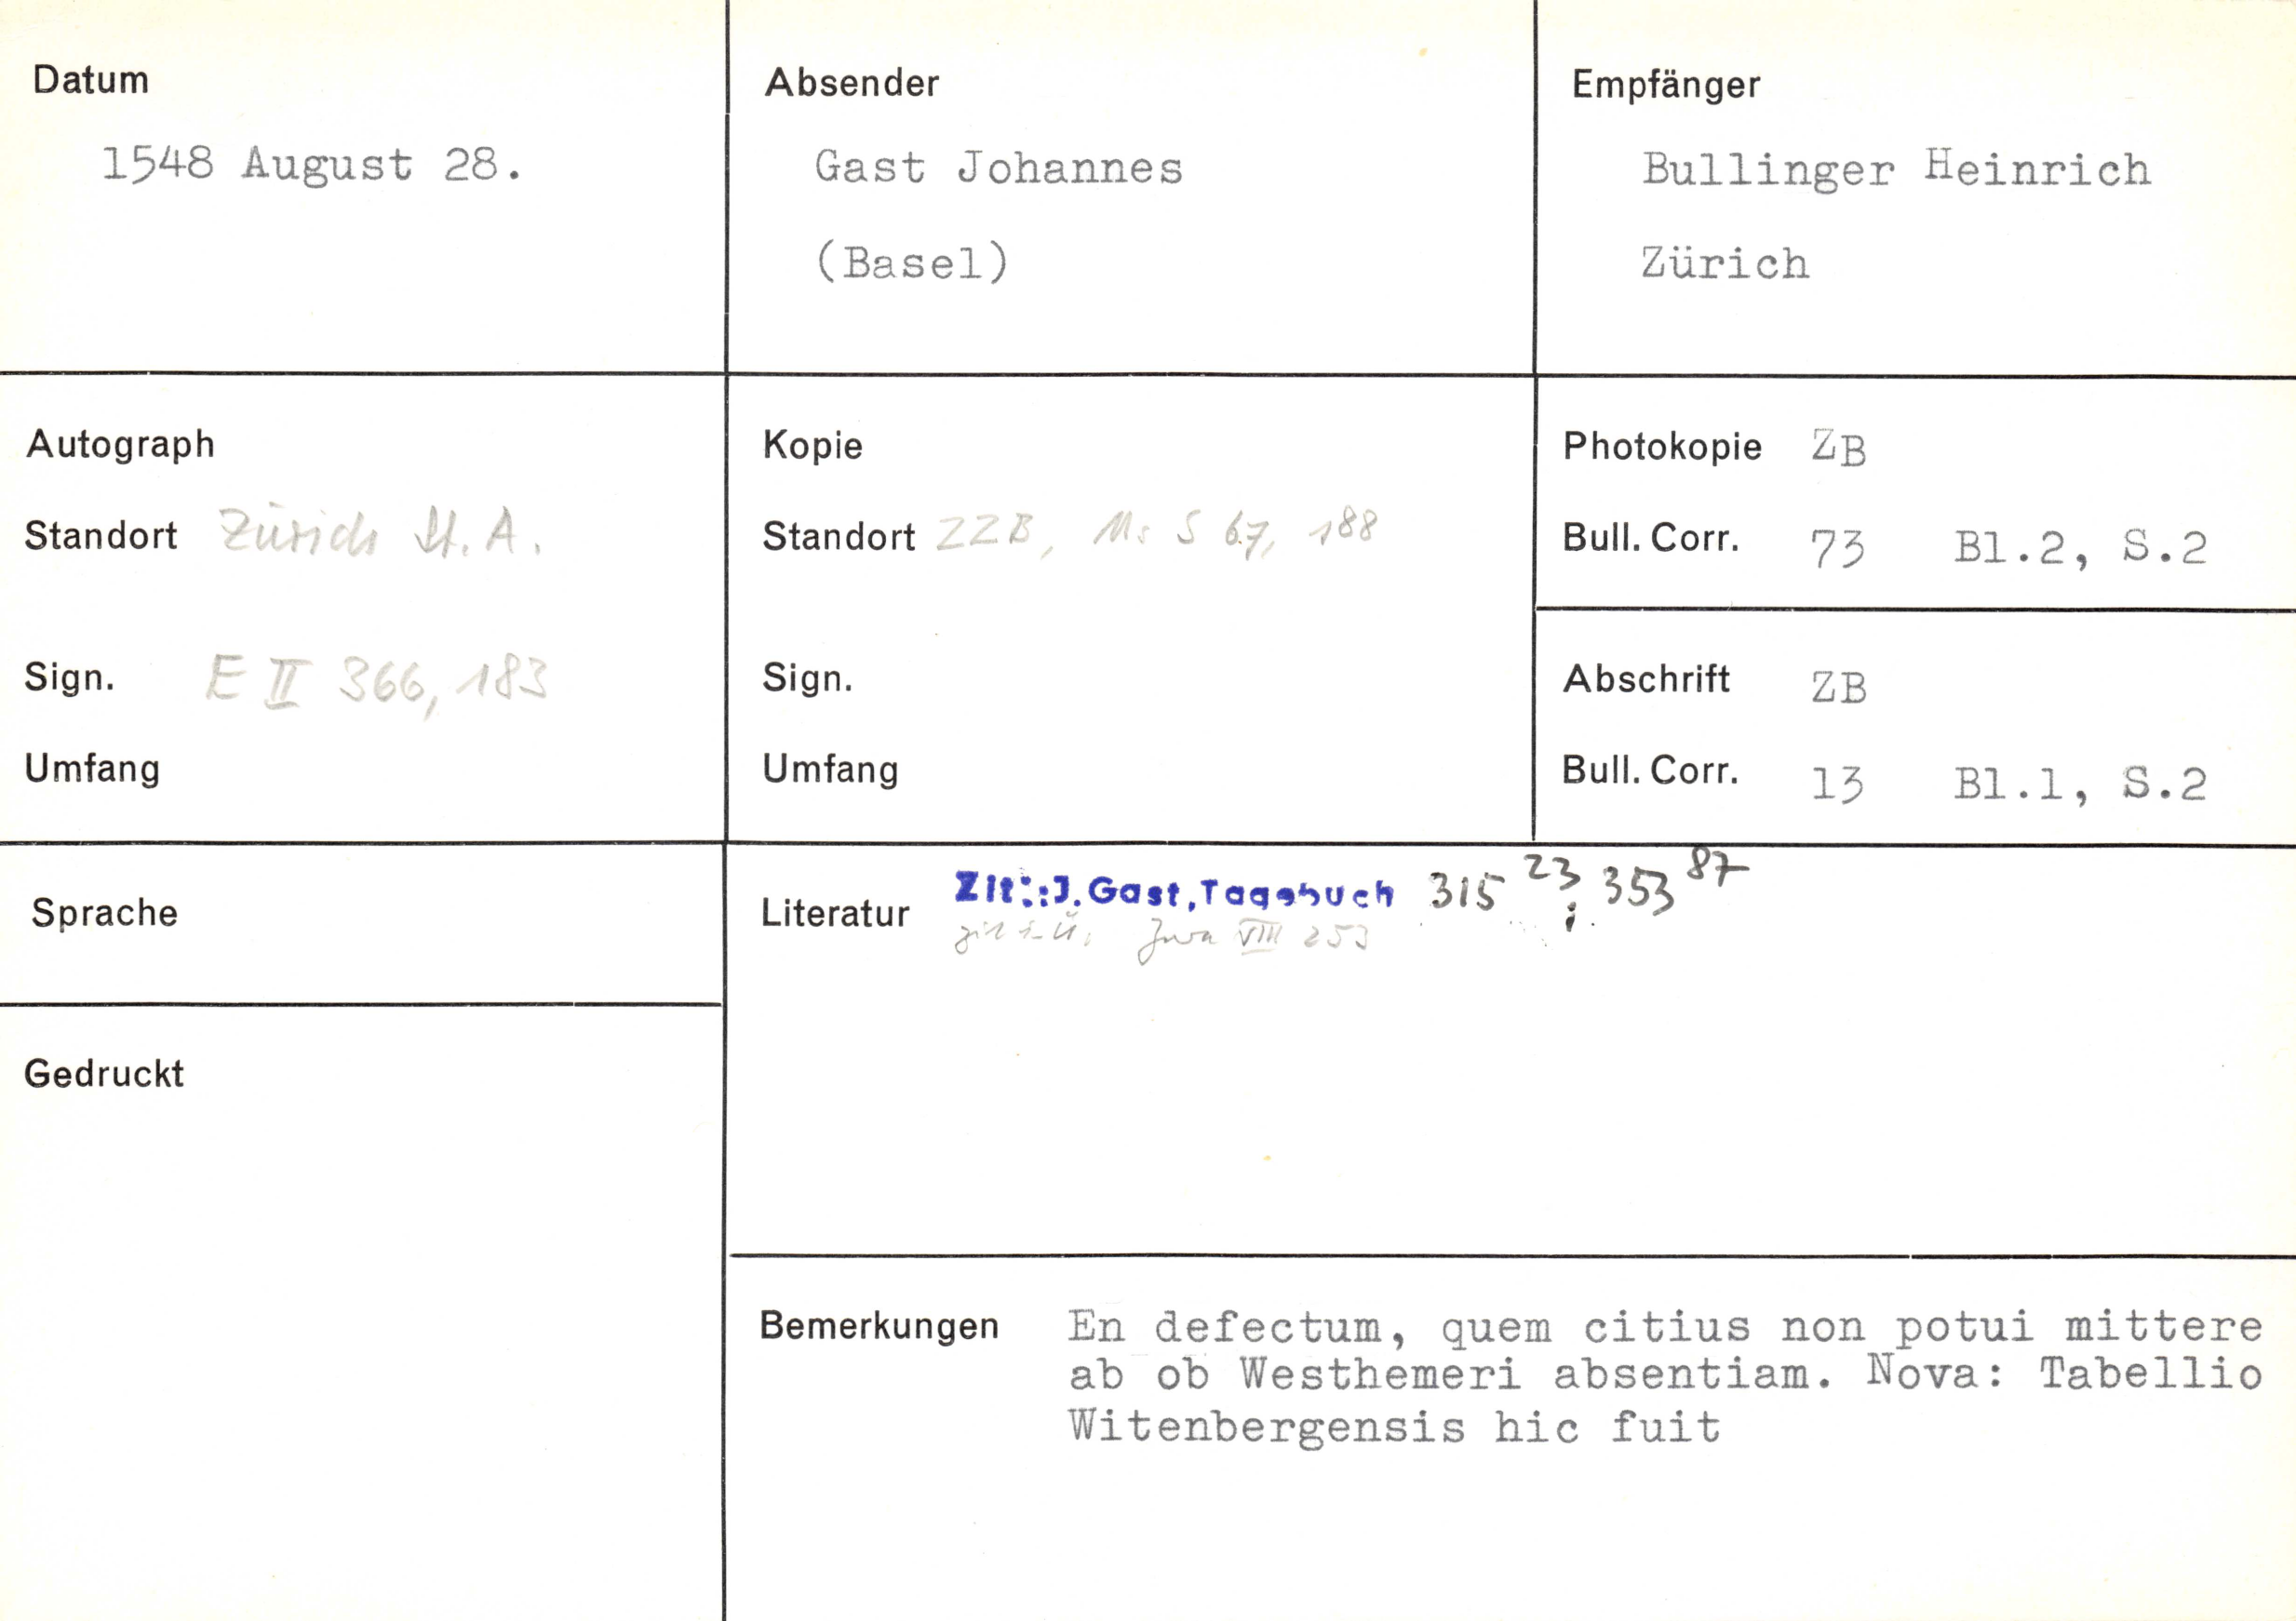 Datum
1548 August 28.
Absender
Gast Johannes
(Basel)
Empfänger
Bullinger Heinrich
Zürich
Autograph
Standort Zürich St. A.
Sign. E II 366, 183
Umfang
Kopie
Standort ZZB, Ms S 67, 188
Sign.
Umfang
Photokopie ZB
Bull. Corr. 73 Bl.2, S.2
Abschrift ZB
Bull. Corr. 13 Bl.1, S.2
Sprache
Gedruckt
Literatur Zit.:J. Gast, Tagebuch 315 23; 353 87
VIII 253
Bemerkungen En defectum, quem citius non potui mittere
ab ob Westhemeri absentiam. Nova: Tabellio
Witenbergensis hic fuit